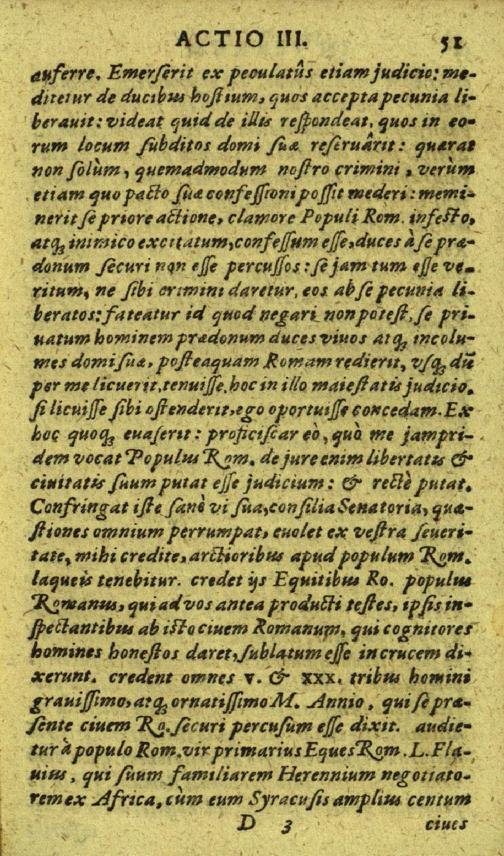 ACTIO III. 51
auferre. Emerserit ex peculatûs etiam judicio: me-
ditetur de ducibus hostium, quos accepta pecunia li-
berauit: videat quid de illis respondeat, quos in eo-
rum locum subditos domi suæ reseruârit: quærat
non solùm, quemadmodum nostro crimini, verùm
etiam quo pacto suæ confessioni possit mederi: memi-
nerit se priore actione, clamore Populi Rom. infesto,
atq; inimico excitatum, confessum esse, duces à se præ-
donum securi non esse percussos: se jam tum esse ve-
ritum, ne sibi crimini daretur, eos ab se pecunia li-
beratos: fateatur id quod negari non potest, se pri-
uatum hominem prædonum duces viuos atq; incolu-
mes domi suæ, posteaquam Romam redierit, vsq; dũ
per me licuerit, tenuisse. hoc in illo maiestatis judicio.
si licuisse sibi ostenderit, ego oportuisse concedam. Ex
hoc quoq; euaserit: proficiscar eò, quò me jampri-
dem vocat Populus Rom. de jure enim libertatis &
ciuitatis suum putat esse judicium: & rectè putat.
Confringat iste sanè vi sua, consilia Senatoria, quæ-
stiones omnium perrumpat, euolet ex vestra seueri-
tate, mihi credite, arctioribus apud populum Rom.
laqueis tenebitur. credet ijs Equitibus Ro. populus
Romanus, qui ad vos antea producti testes, ipsis in-
spectantibus ab isto ciuem Romanum, qui cognitores
homines honestos daret, sublatum esse in crucem di-
xerunt. credent omnes V. & XXX. tribus homini
grauissimo, atq; ornatissimo M. Annio, qui se præ-
sente ciuem Ro. securi percusum esse dixit. audie-
tur à populo Rom. vir primarius Eques Rom. L. Fla-
uius, qui suum familiarem Herennium negotiato-
rem ex Africa, cùm eum Syracusis amplius centum
D 3 ciues